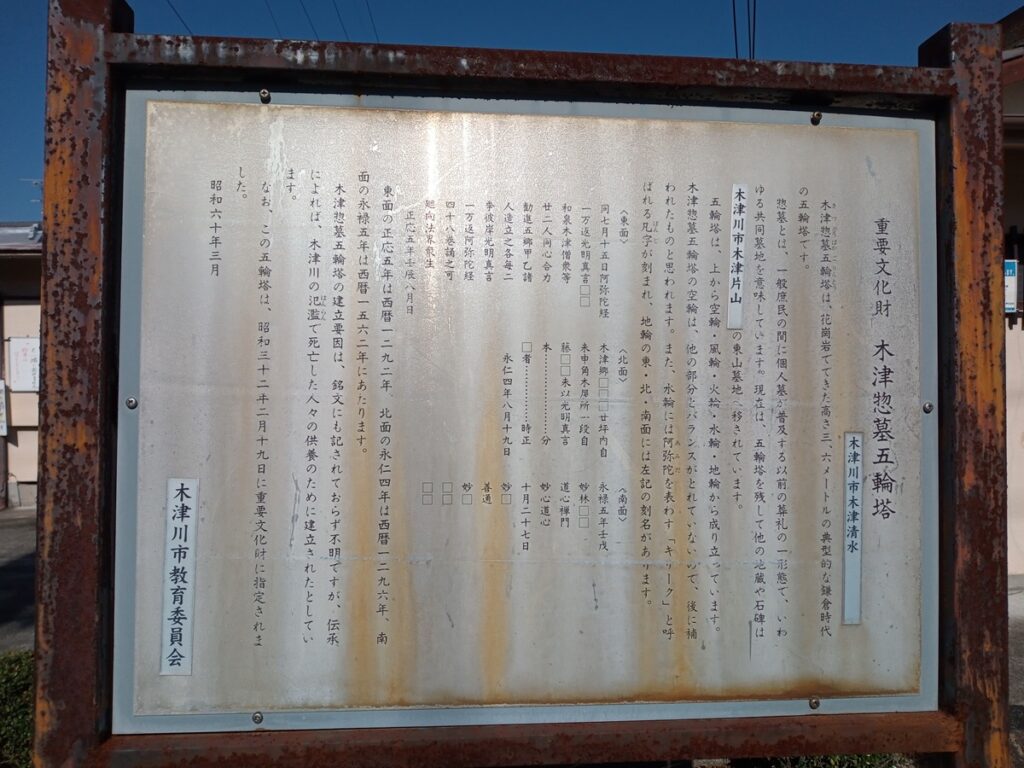 重要文化財 木津惣墓五輪塔
木津川市木津清水
木津惣墓五輪塔は、花崗岩でできた高さ三、六メートルの典型的な鎌倉時代
の五輪塔です。
惣墓とは、一般庶民の間に個人墓が普及する以前の葬礼の一形態で、いわ
ゆる共同墓地を意味しています。現在は、五輪塔を残して他の地蔵や石碑は
木津川市木津片山の東山墓地へ移されています。
五輪塔は、上から空輪・風輪・火輪・水輪・地輪から成り立っています。
木津惣墓五輪塔の空輪は、他の部分とバランスがとれていないので、後に補
われたものと思われます。また、水輪には阿弥陀を表わす「キリーク」と呼
ばれる梵字が刻まれ、地輪の東・北・南面には左記の刻名があります。
〈東面〉
同七月十五日阿弥陀経
一万返光明真言□□
和泉木津僧衆等
廿二人同心合力
勧進五郷甲乙諸
人造立之各毎二
季彼岸光明真言
一万返阿弥陀経
四十八巻誦之可
廻向法界衆生
正応五年壬辰八月日
〈北面〉
木津郷□□□廿坪内自
未申角木屋所一段自
藤□□未以光明真言
本…………………分
□者………………時正
永仁四年八月十九日
〈南面〉
永禄五年壬戌
妙林□□
道心禅門
妙心道心
十月二十七日
妙□
善通
妙□
□□
□□
東面の正応五年は西暦一二九二年、北面の永仁四年は西暦一二九六年、南
面の永禄五年は西暦一五六二年にあたります。
木津惣墓五輪塔の建立要因は、銘文にも記されておらず不明ですが、伝承
によれば、木津川の氾濫で死亡した人々の供養のために建立されたとしてい
ます。
なお、この五輪塔は、昭和三十二年二月十九日に重要文化財に指定されま
した。
昭和六十年三月
木津川市教育委員会